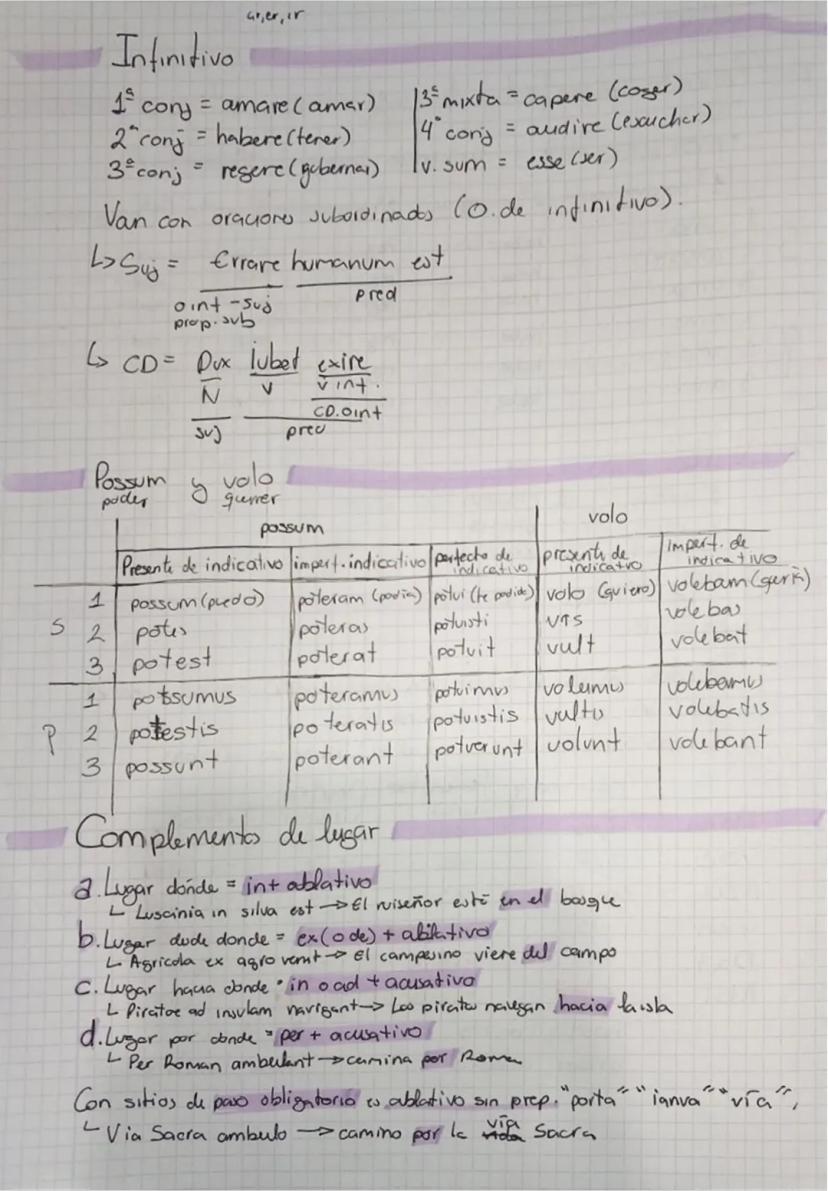 ar, er, ir
Infinitivo
1ª conj = amare (amar)
2ª conj = habere (tener)
3ª conj = regere (gobernar)
3ª mixta = capere (coger)
4ª conj = audire (escuchar)
v. sum = esse (ser)
Van con oraciones subordinadas (O. de infinitivo).
↳ Suj = Errare humanum est
o inf - suj pred
prop. sub
↳ CD = Dux iubet exire
N V v inf.
CD. o inf
suj pred
Possum y volo
poder querer
possum volo
Presente de indicativo imperf. indicativo perfecto de indicativo presente de indicativo imperf. de indicativo
S 1 possum (puedo) poteram (podía) potui (he podido) volo (quiero) volebam (quería)
2 potes poteras potuisti vis volebas
3 potest poterat potuit vult volebat
P 1 possumus poteramus potuimus volumus volebamus
2 potestis poteratis potuistis vultis volebatis
3 possunt poterant potuerunt volunt volebant
Complemento de lugar
a. Lugar dónde = in + ablativo
↳ Luscinia in silva est → El ruiseñor está en el bosque
b. Lugar desde donde = ex (o de) + ablativo
↳ Agricola ex agro venit → El campesino viene del campo
c. Lugar hacia donde = in o ad + acusativo
↳ Piratae ad insulam navigant → Los piratas navegan hacia la isla
d. Lugar por donde = per + acusativo
↳ Per Roman ambulant → camina por Roma
Con sitios de paso obligatorio es ablativo sin prep. "porta" "ianua" "vía",
↳ Via Sacra ambulo → camino por la vía Sacra